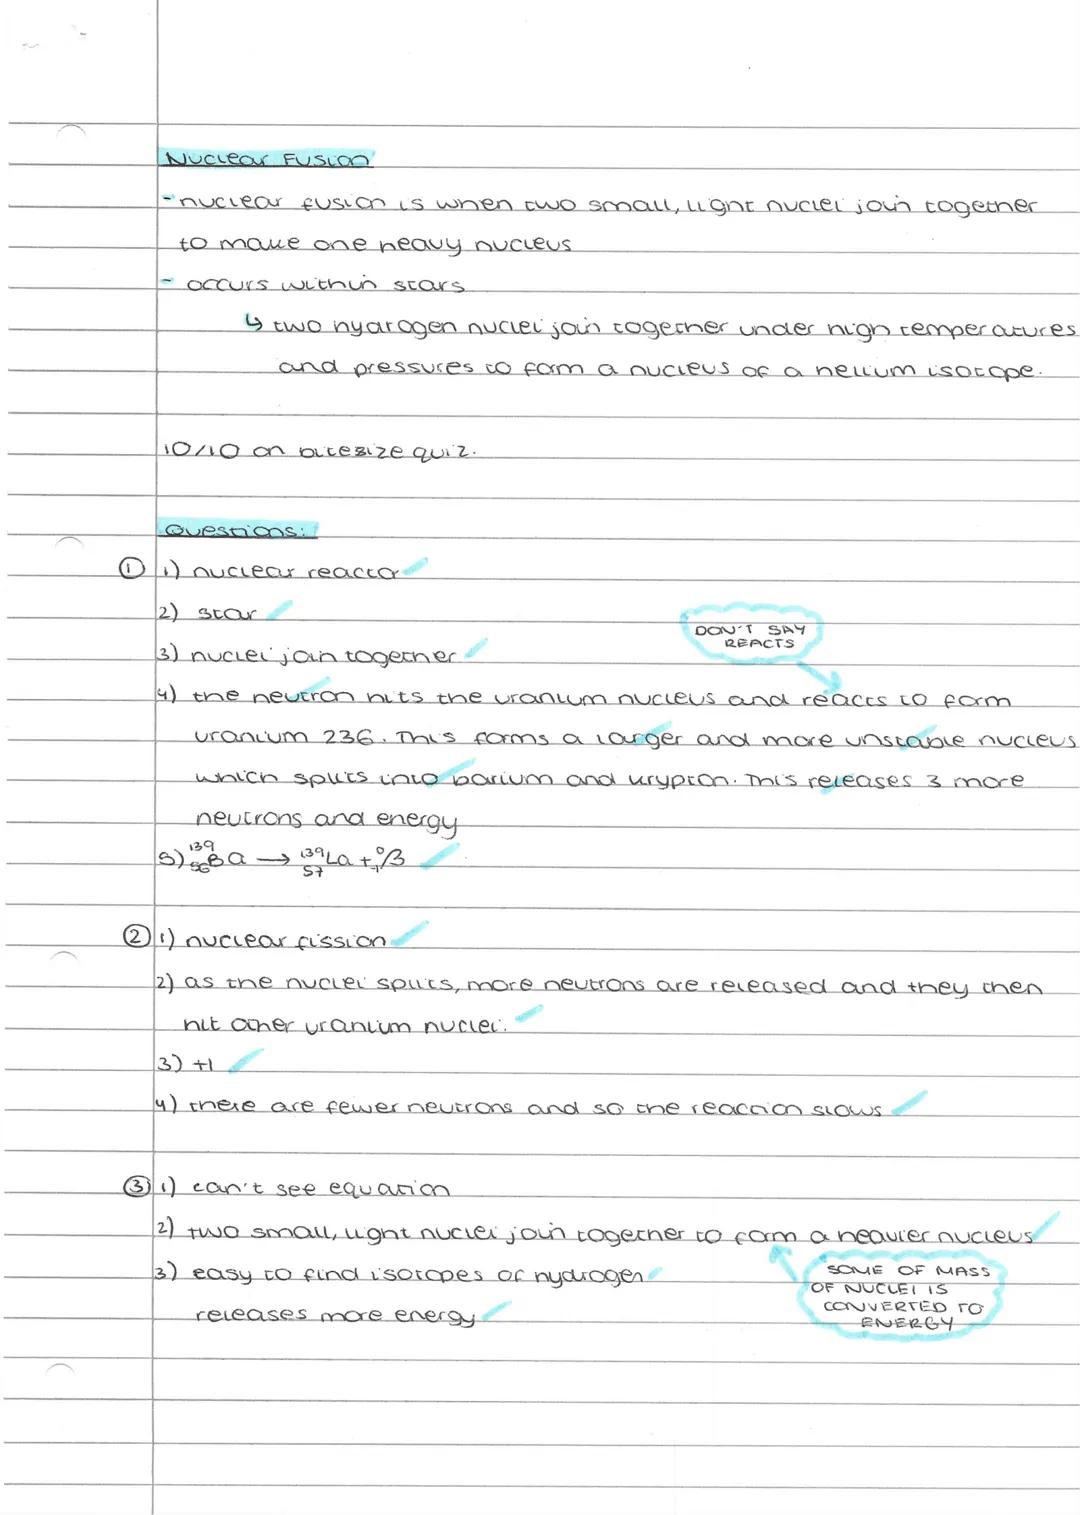 Nuclear Fusion
- nuclear fusion is when two small, light nuclei join together
to make one heavy nucleus
- occurs within stars
↳ two hydrogen nuclei join together under high temperatures
and pressures to form a nucleus of a helium isotope.
10/10 on bitesize quiz.
Questions:
① 1) nuclear reactor
2) star
DON'T SAY
REACTS
3) nuclei join together
4) the neutron hits the uranium nucleus and reacts to form
uranium 236. This forms a larger and more unstable nucleus
which splits into barium and krypton. This releases 3 more
neutrons and energy
5) ¹³⁹₅₆Ba → ¹³⁹₅₇La + ⁰₋₁β
② 1) nuclear fission
2) as the nuclei splits, more neutrons are released and they then
hit other uranium nuclei.
3) +1
4) there are fewer neutrons and so the reaction slows
③ 1) can't see equation
2) two small, light nuclei join together to form a heavier nucleus
3) easy to find isotopes of hydrogen
releases more energy
SOME OF MASS
OF NUCLEI IS
CONVERTED TO
ENERGY